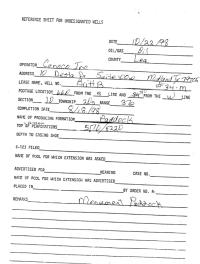 REFERENCE SHEET FOR UNDESIGNATED WELLS
DATE 10/22/98
OIL/GAS Oil
COUNTY Lea
OPERATOR Conoco Inc
ADDRESS 10 Desta Dr Midland Tx
LEASE NAME, WELL NO. Britt B #34-M
FOOTAGE LOCATION 660 FROM THE S LINE AND FROM THE W LINE
SECTION 10 TOWNSHIP 20S RANGE 37E
COMPLETION DATE 8/8/98
NAME OF PRODUCING FORMATION Paddock
TOP OF PERFORATIONS 5176/5220
DEPTH TO CASING SHOE
C-123 FILED
NAME OF POOL FOR WHICH EXTENSION WAS ASKED
ADVERTISED FOR HEARING CASE NO.
NAME OF POOL FOR WHICH EXTENSION WAS ADVERTISED
PLACED IN BY ORDER NO. R-
REMARKS Monument Paddock